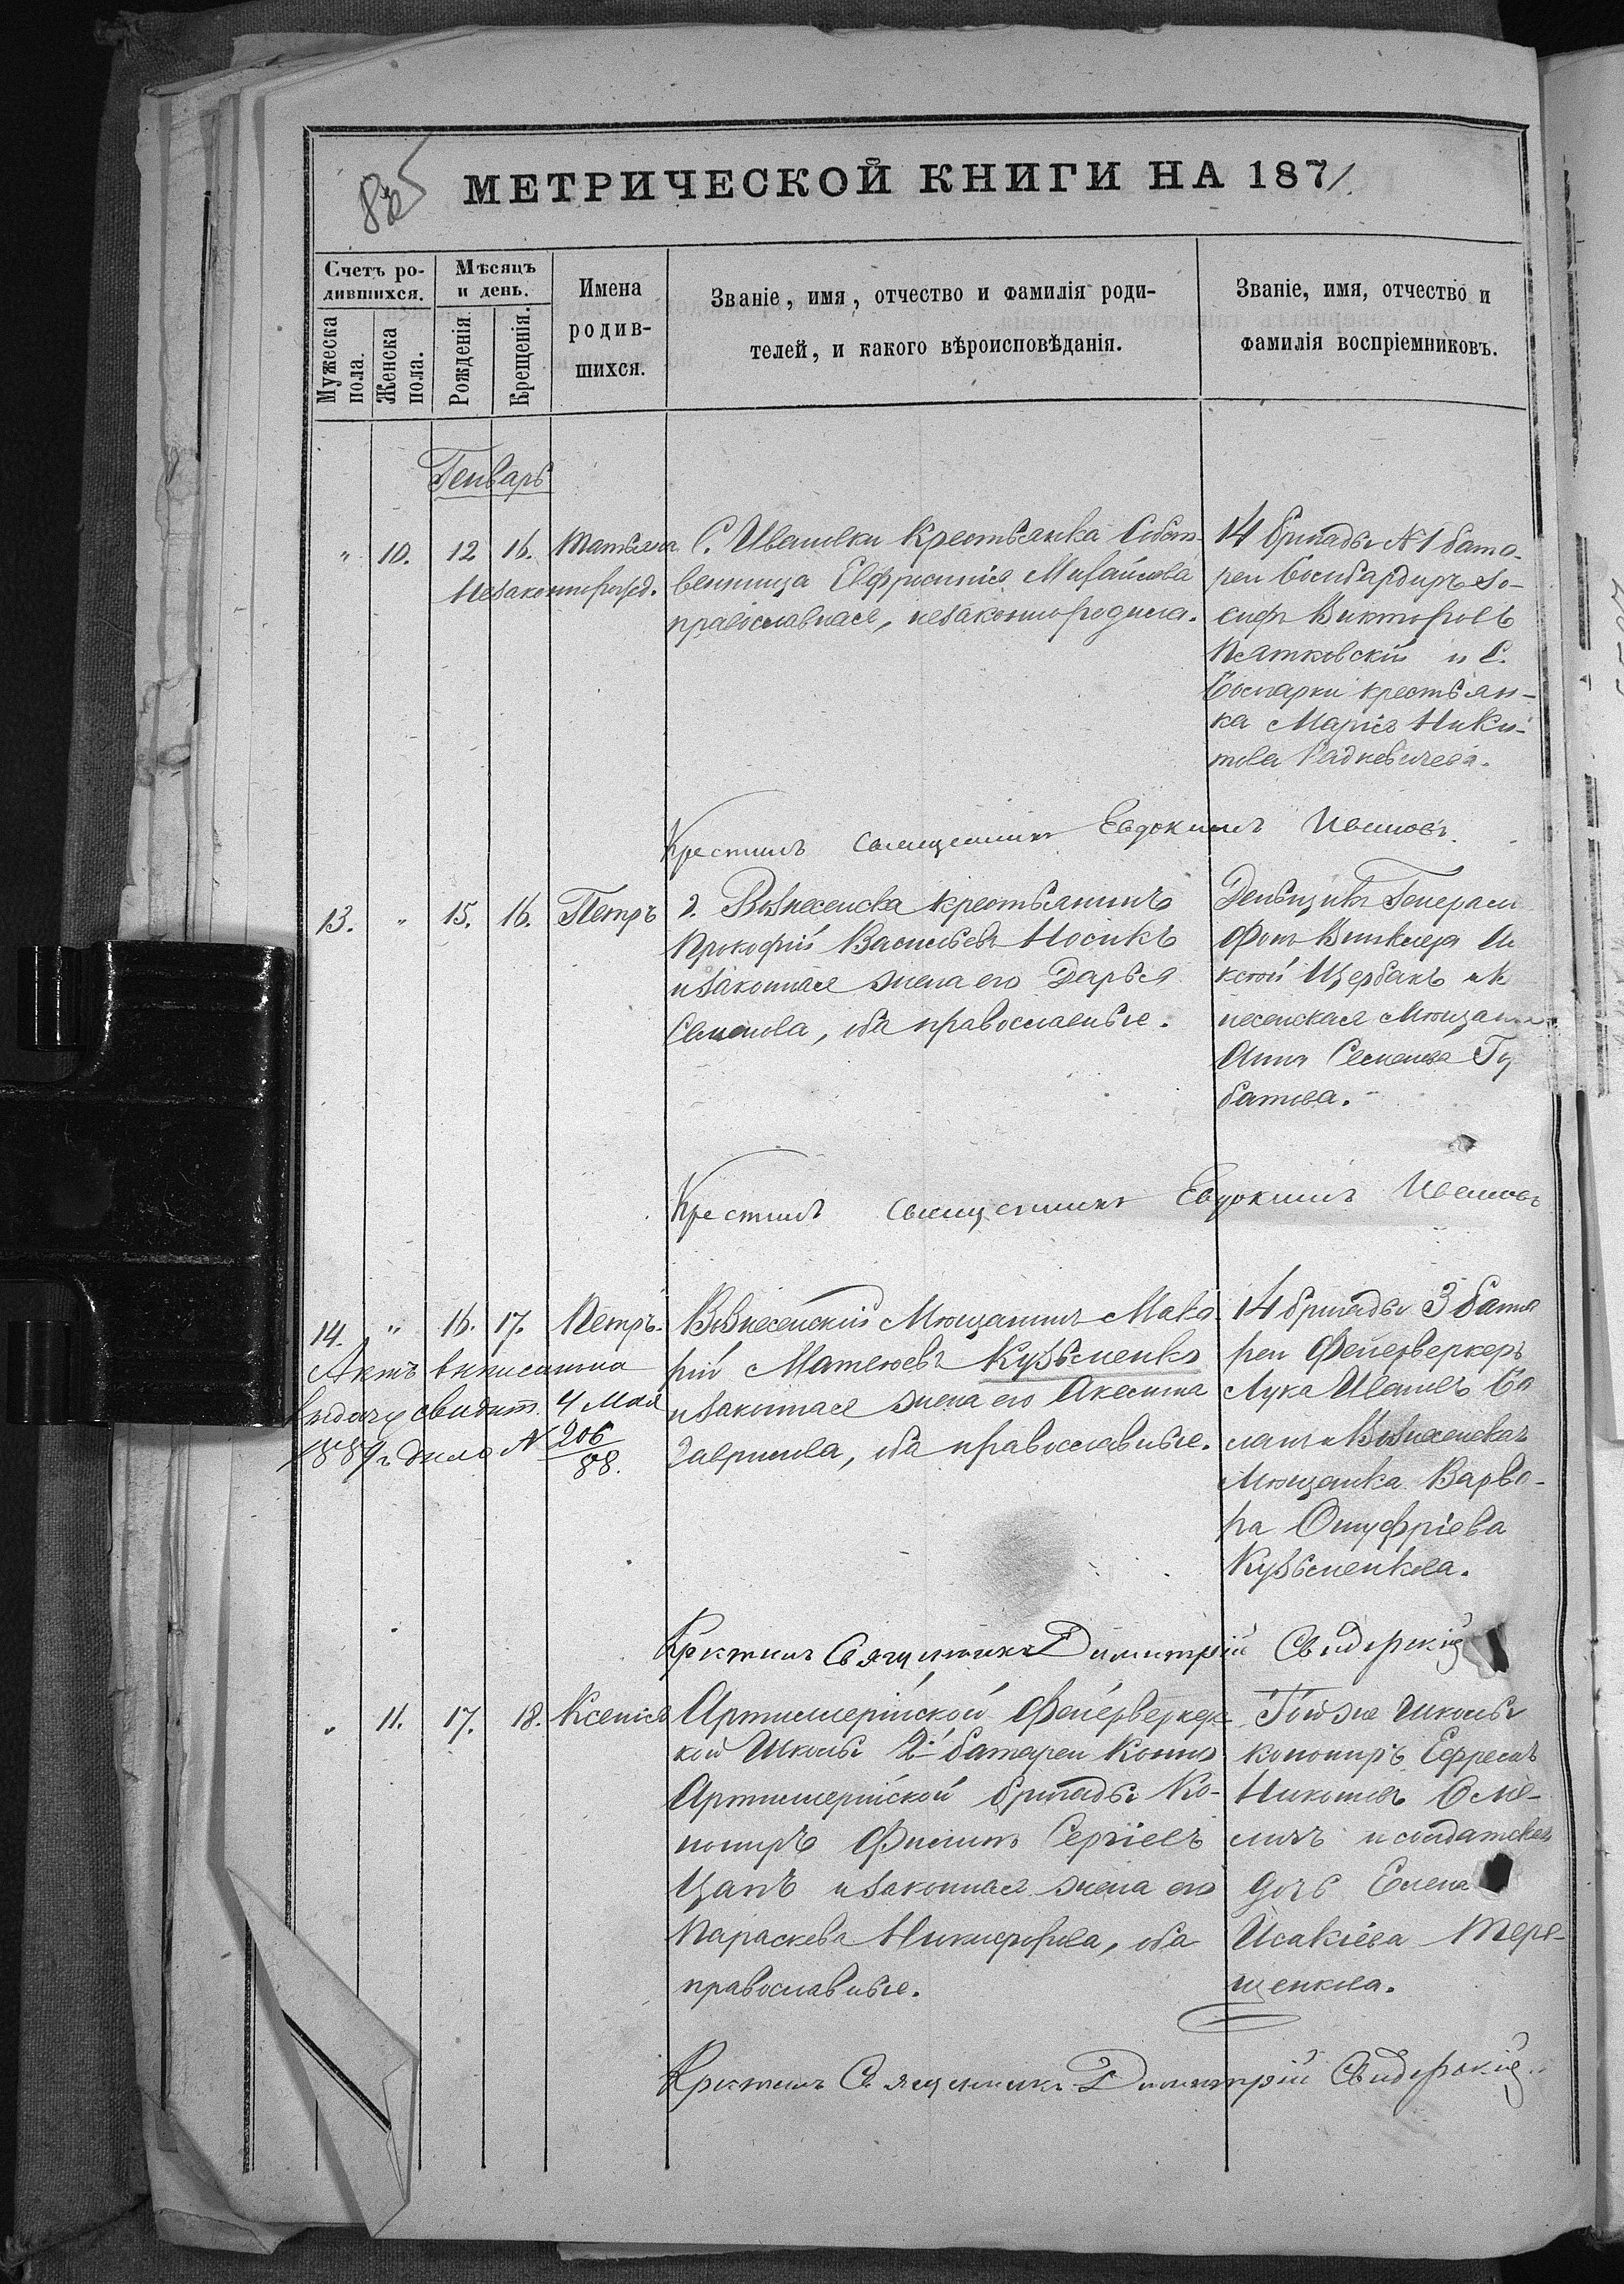 825
МЕТРИЧЕСКОЙ КНИГИ НА 1871.
Счетъ ро-
дившихся.
Мѣсяцъ
и день.
Мужеска
пола.
Женска
пола.
Рожденія
Крещенія.
Имена
родив-
шихся.
Званіе, имя, отчество и фамилія роди-
телей, и какого вѣроисповѣданія.
Званіе, имя, отчество и
фамилія воспріемниковъ.
Генварь
" 10. 12 16. Татьяна
Незаконнорожд.
С. Ивановки Крестьянка Собст-
венница Евфросинія Михайлова
православная, незаконнородила.
14 бригады №1 бата-
реи бомбардиръ Іо-
сифъ Викторовъ
Пятковскій и С.
крестьян-
ка Марія Ники-
това Радкевичева.
Крестилъ священникъ Евдокимъ Ивановъ
13. " 15. 16. Петръ
г. Вознесенска крестьянинъ
Прокофій Васильевъ Носикъ
и законная жена его Дарья
Семенова, оба православные.
Деньщикъ Генерала
Фонъ Винклера
Щербакъ и
несенская Мѣщанка
Анна Семенова Гу
батова.
Крестилъ священникъ Евдокимъ Ивановъ
14. " 16. 17. Петръ.
Актъ выписанна
выдачу свидѣт. 4 Мая
1889г. дѣло № 206/88.
Вознесенскій Мѣщанинъ Мака-
рій Матѳѣевъ Кузьменко
и законная жена его Акелина
Гаврилова, оба православные.
14 бригады 3 бата
реи Фейерверкеръ
Лука Ивановъ Ба
ланъ и Вознесенская
Мѣщанка Варва-
ра Онуфріева
Кузьменкова.
Крестилъ Священникъ Димитрій Свидерскій
" 11. 17. 18. Ксенія
Артиллерійской Фейерверкерс
кой Школы 2й батареи Конно
Артиллерійской бригады Ка-
нониръ Филиппъ Сергіевъ
Цапъ и законная жена его
Параскева Никифорова, оба
православные.
Той же Школы
канониръ Ефремъ
и солдатская
дочь Елена
Исакіева Тере-
щенкова.
Крестилъ Священникъ Димитрій Свидерскій.